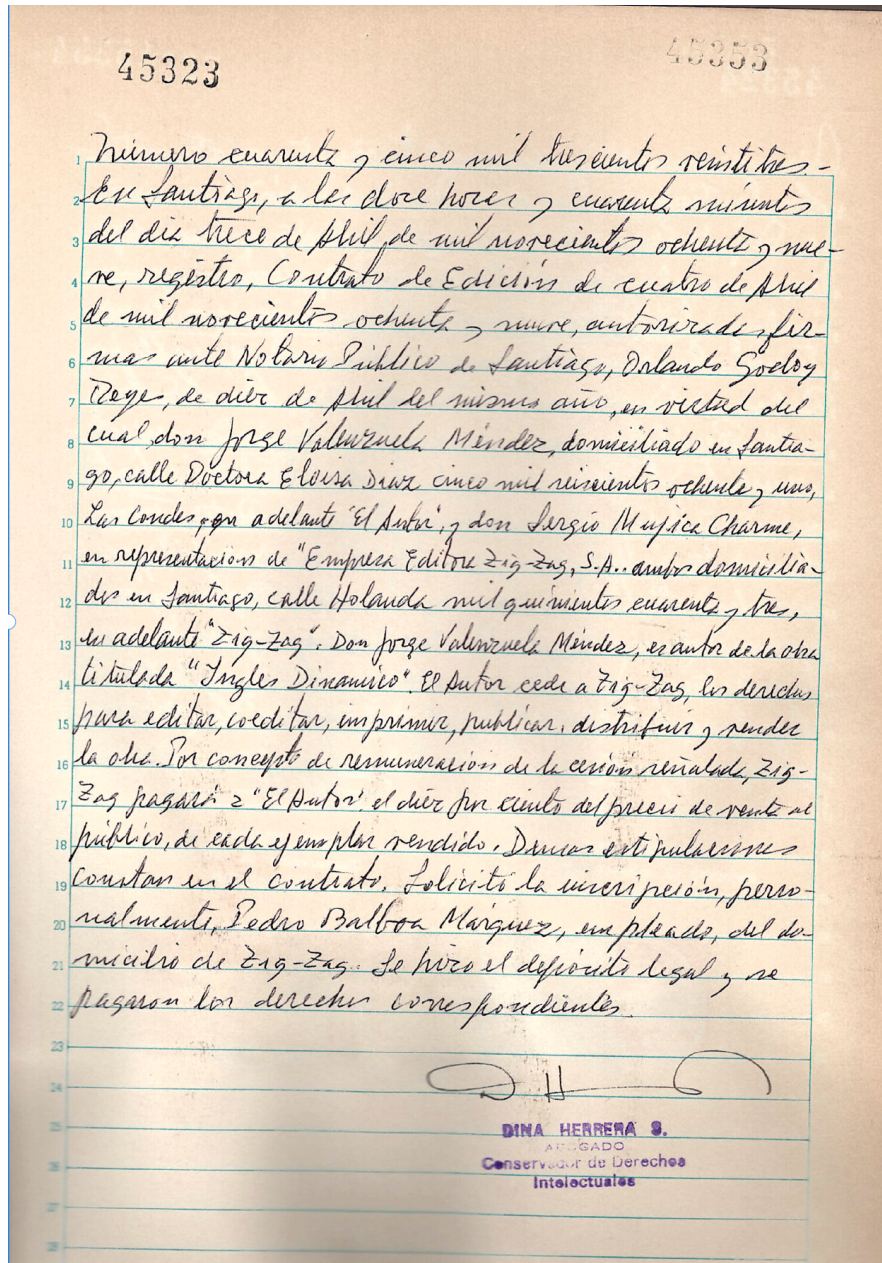 45323
45353
1 Número cuarenta y cinco mil trescientos veintitres.-
2 En Santiago, a las doce horas y cuarenta minutos
3 del día trece de Abril, de mil novecientos ochenta y nue-
4 ve, registro, Contrato de Edición de cuatro de Abril
5 de mil novecientos ochenta y nueve, autorizadas fir-
6 mas ante Notario Público de Santiago, Orlando Godoy
7 Reyes, de diez de Abril del mismo año, en virtud del
8 cual, don Jorge Valenzuela Méndez, domiciliado en Santia-
9 go, calle Doctora Eloisa Diaz cinco mil seiscientos ochenta y uno,
10 Las Condes, en adelante "El Autor", y don Sergio Mujica Charme,
11 en representación de "Empresa Editora Zig-Zag, S.A.. ambos domicilia-
12 dos en Santiago, calle Holanda mil quinientos cuarenta y tres,
13 en adelante "Zig-Zag". Don Jorge Valenzuela Méndez, es autor de la obra
14 titulada "Ingles Dinamico". El Autor cede a Zig-Zag, los derechos
15 para editar, coeditar, imprimir, publicar, distribuir y vender
16 la obra. Por concepto de remuneración de la cesión señalada, Zig-
17 Zag pagará a "El Autor" el diez por ciento del precio de venta al
18 público, de cada ejemplar vendido. Demas estipulaciones
19 constan en el contrato. Solicitó la inscripción, perso-
20 nalmente, Pedro Balboa Márquez, empleado, del do-
21 micilio de Zig-Zag. Se hizo el depósito legal y se
22 pagaron los derechos correspondientes.
23
24
25 DINA HERRERA S.
ABOGADO
26 Conservador de Derechos
Intelectuales
27
28